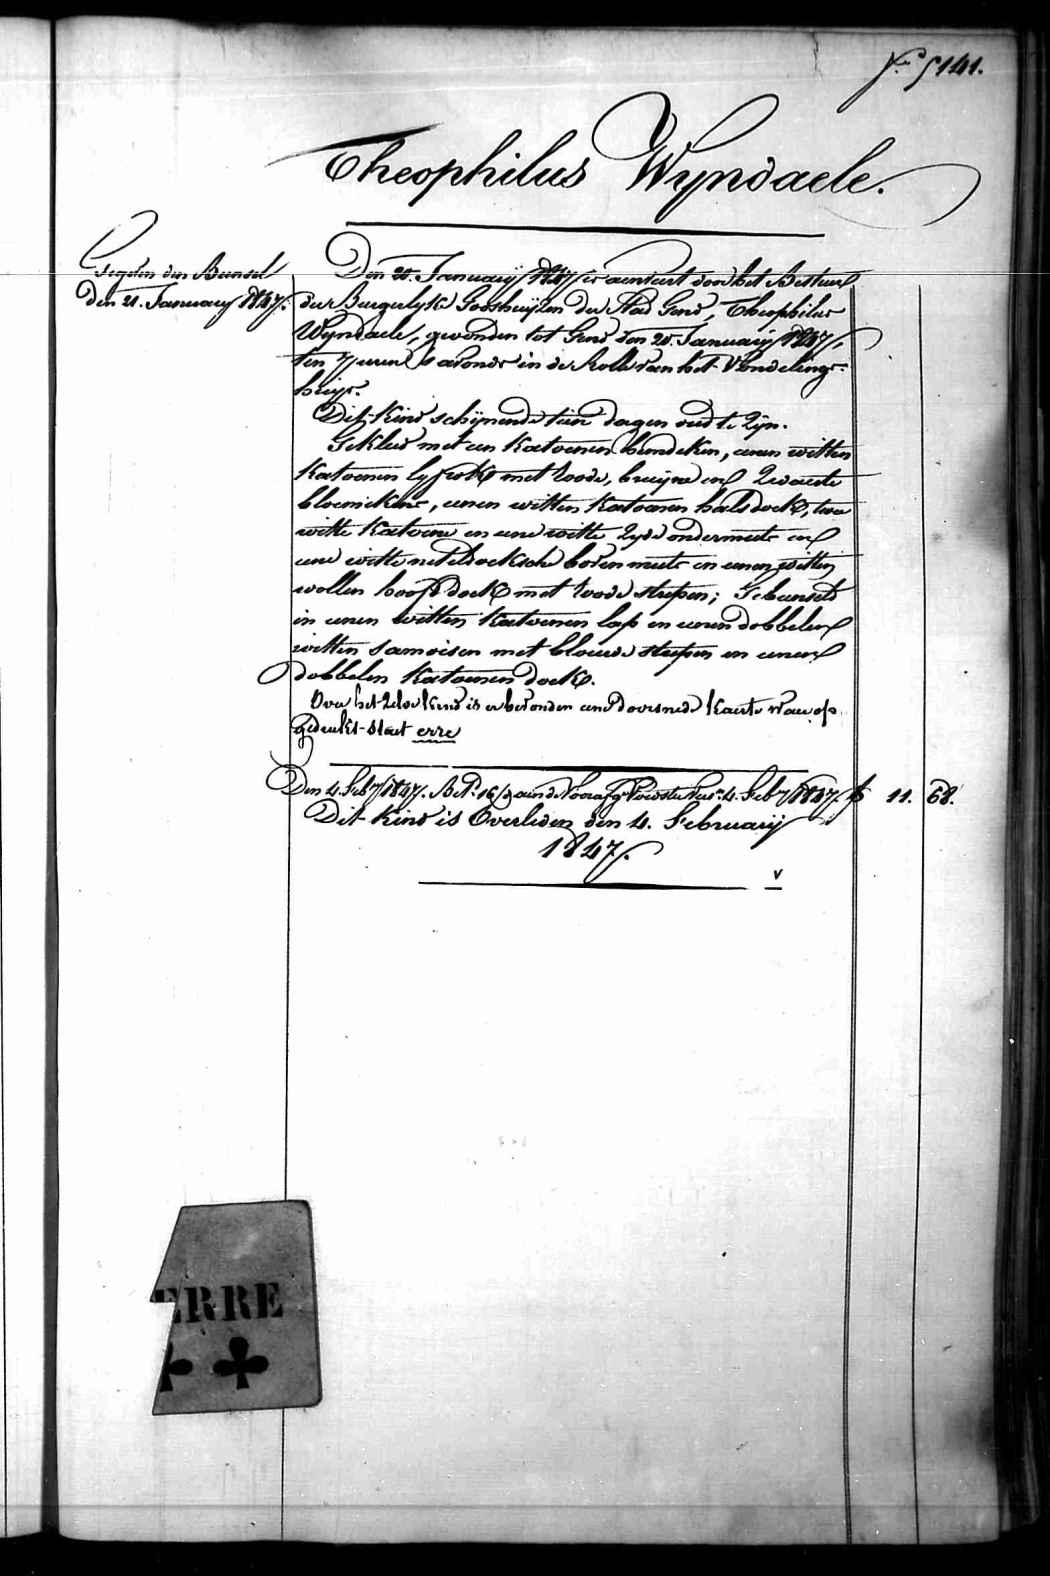 141.
Theophilus Wyndaele.
den Bunsel
Den 21. January 1847.
Den 20. January 1847 is aenveirt door het Bestuur
der Burgerlyke Godshuyzen der Stad Gend, Theophilus
Wyndaele, gevonden tot Gend den 20. January 1847,
ten 7 uren 's avonds in de Rolle van het Vondelings-
huys.
Dit Kind schynende tien dagen oud te zyn.
Gekleed met een Katoenen hemdeken, eenen witten
Katoenen lyfrok met roode, bruyne en zwarte
bloemekens, eenen witten Katoenen halsdoek, twee
witte Katoene en eene witte zyde ondermuts en
eene witte neteldoeksche bovenmuts en eenen witten
wollen hoofddoek met roode strepen; Gebunseld
in eenen witten Katoenen lap en eenen dobbelen
witten Samoisen met blouwe strepen en eenen
dobbelen Katoenen doek.
Over het zelve Kind is er bevonden eene doorsnede Kaerte waer op
gedrukt staet erre
Den 4. Feb 1847. 4. Feb 1847. 11. 68.
Dit Kind is Overleden den 4. February
1847.
v
ERRE